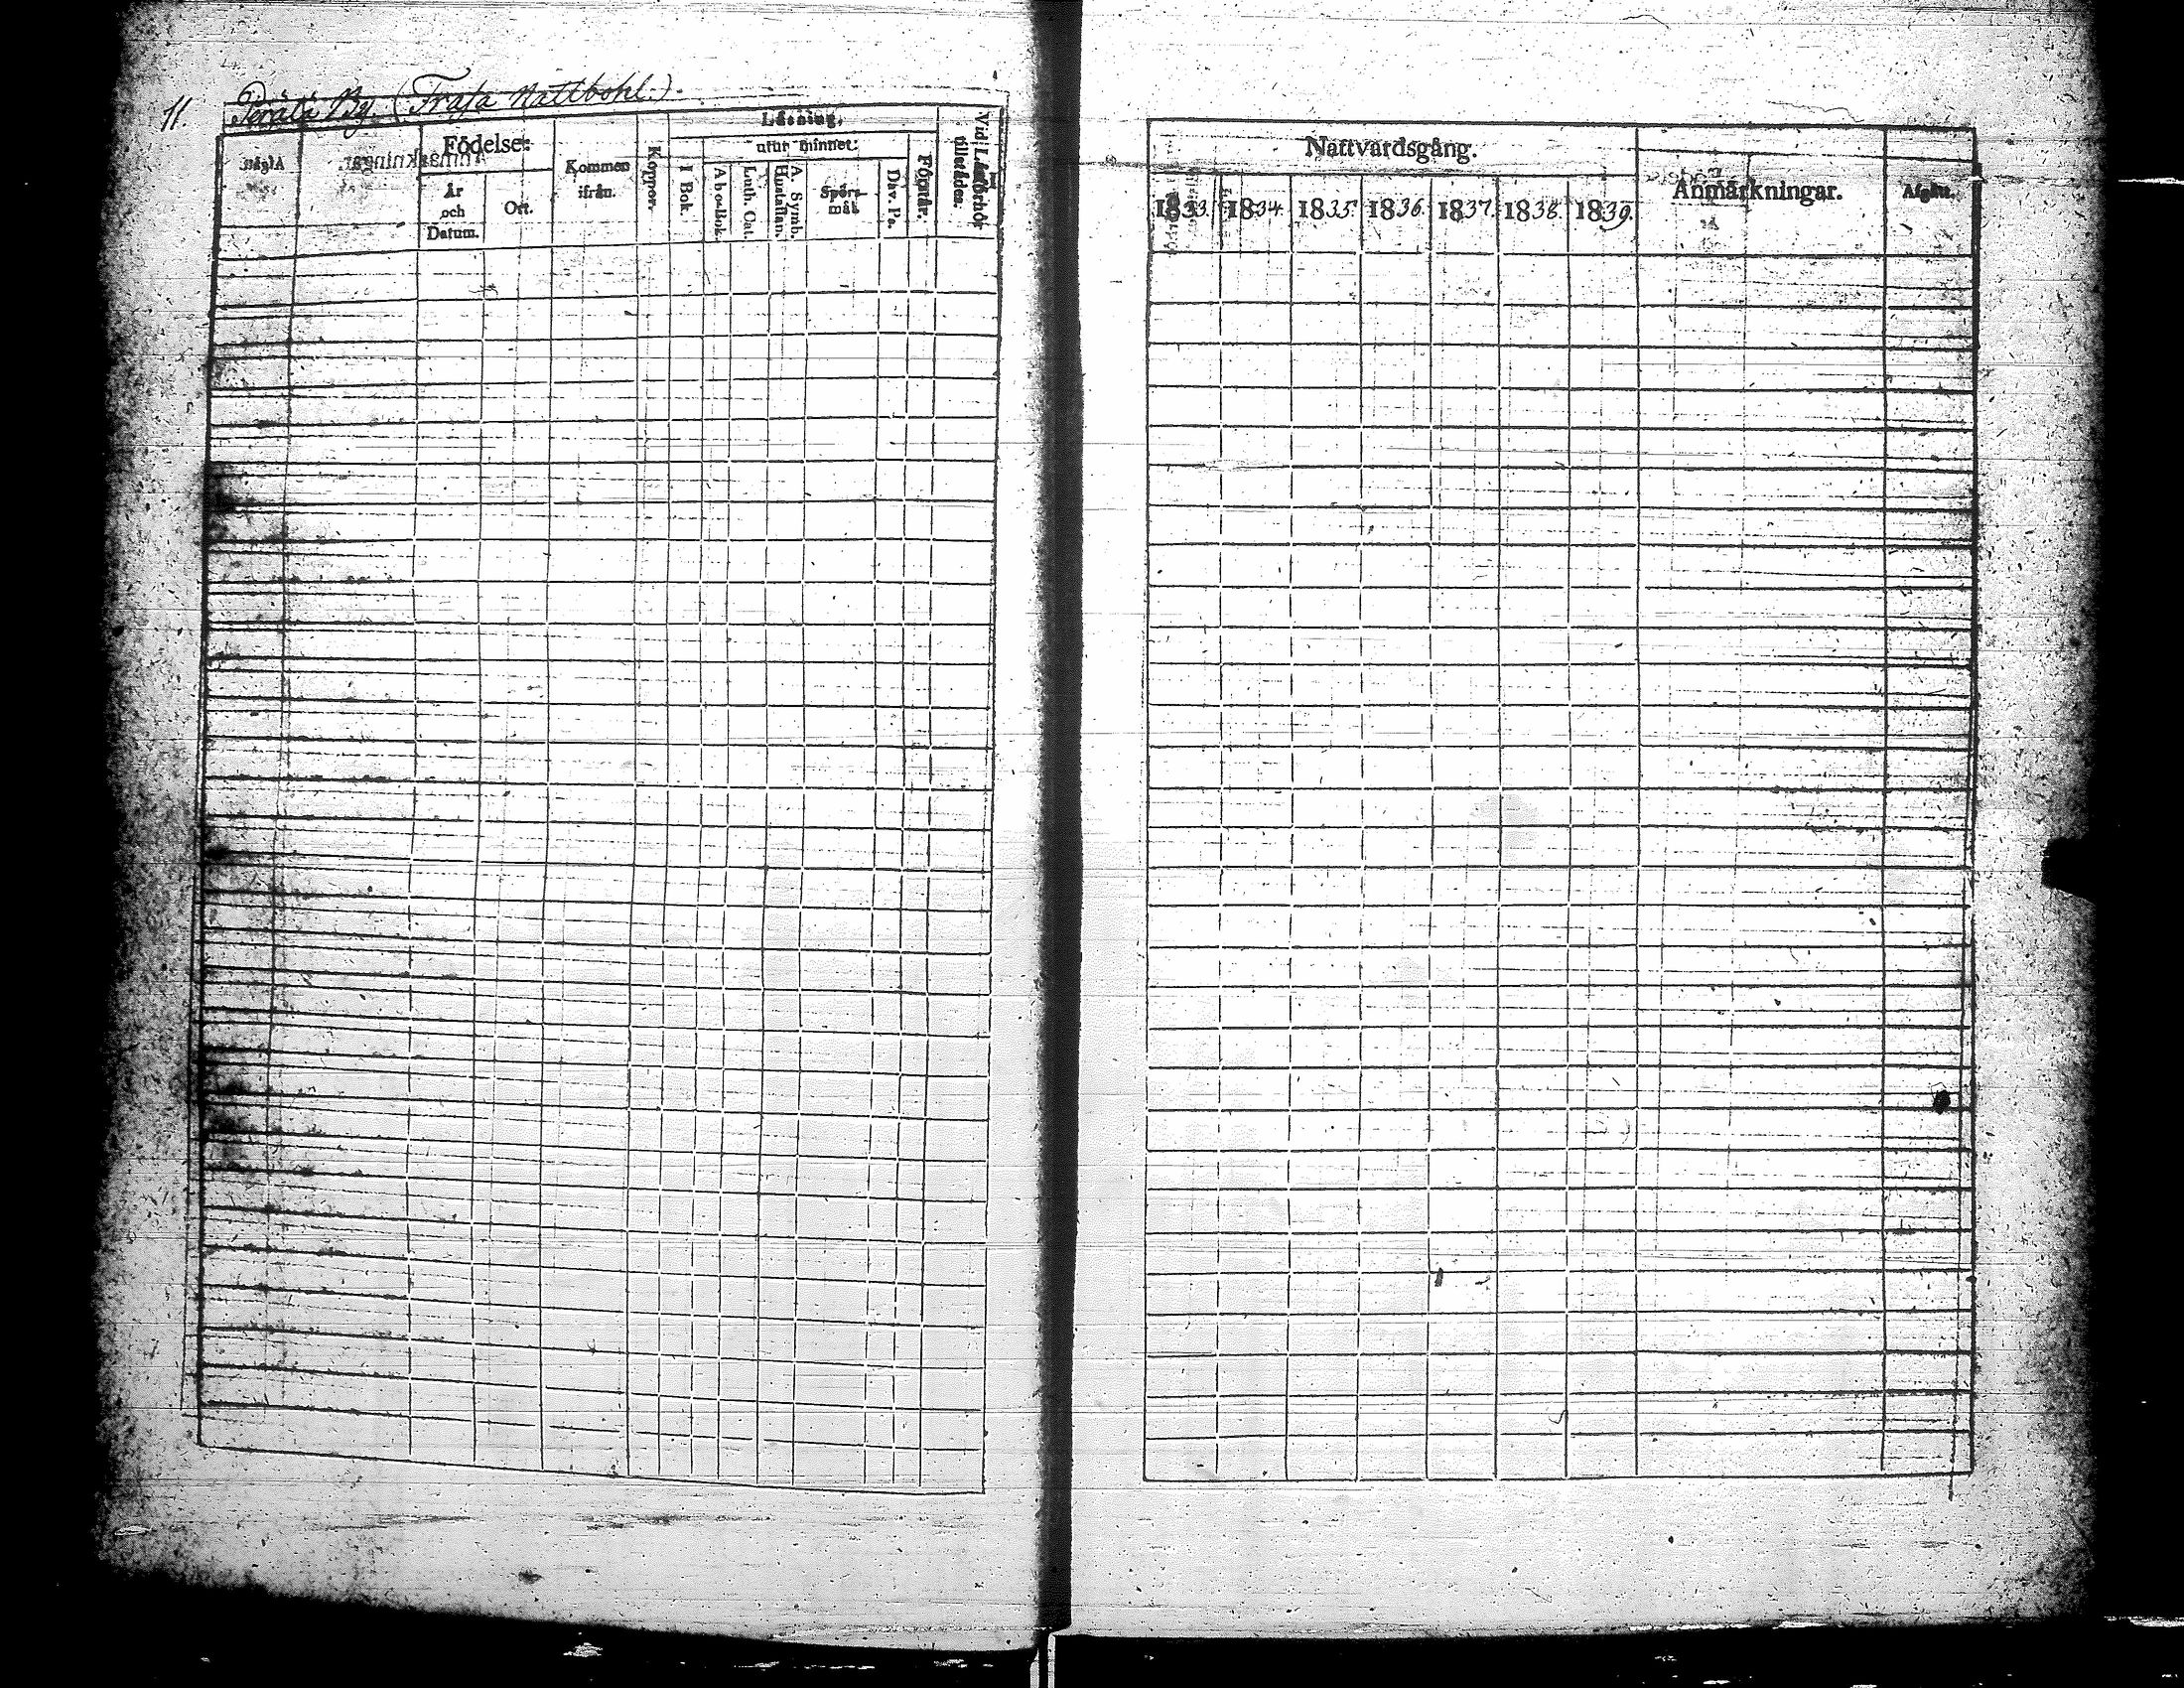 11. Perälä By. (Trafa Nättbohl.)
Födelse:
År och Datum.
Ort.
Kommen ifrån.
Koppor.
Läsning,
utur minnet:
I Bok.
Abc-Bok.
Luth. Cat.
A. Symb. Hustaflan.
Spörs-mål.
Dav. Ps.
Förstår.
Vid Läsförhör tillstädes.
Nattvardsgång.
1833. 1834. 1835. 1836. 1837. 1838. 1839.
Anmärkningar.
Afgått.